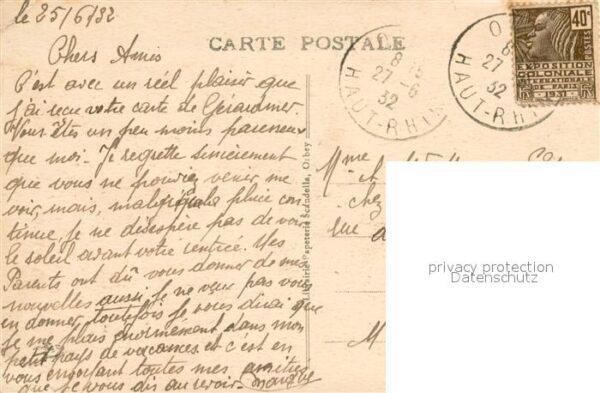 le 25/6/32
Chers Amis
CARTE POSTALE
C'est avec un réel plaisir que
j'ai reçu votre carte de Gérardmer.
Vous êtes un peu moins paresseux
que moi. Je regrette sincièrement
que vous ne pouviez venir me
voir, mais, malgré la pluie con
tinue, je ne désespère pas de voir
le soleil avant votre rentrée. Mes
Parents ont dû vous donner de mes
nouvelles aussi je ne veux pas vous
en donner, toutefois je vous dirai que
je me plais énormément dans mon
petit pays de vacances et c'est en
vous envoyant toutes mes amitiés
que je vous dis au revoir.
Papeterie Scandella, Orbey
O
8
27-6
32
HAUT-RHIN
O
8
27
32
HAUT-RHIN
40c
POSTES
EXPOSITION
COLONIALE
INTERNATIONALE
DE PARIS
1931
Mme
chez
Rue
M
privacy protection
Datenschutz